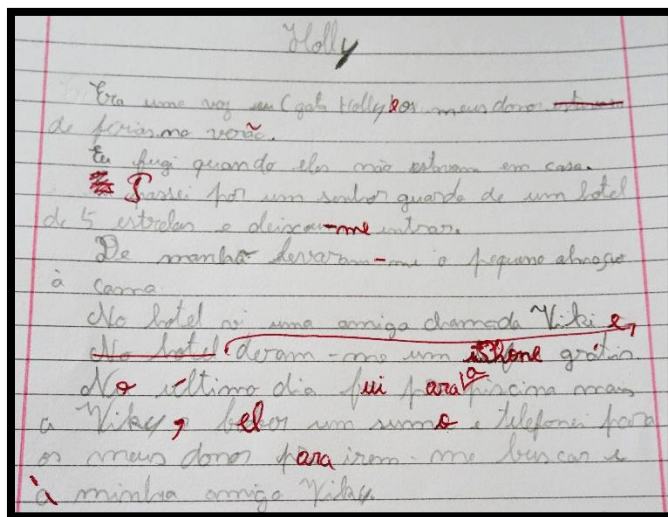 Holly
Era uma vez eu (gata Holly) e os meus donos
de férias no verão.
Eu fugi quando eles não estavam em casa.
Passei por um senhor guarda de um hotel
de 5 estrelas e deixou-me entrar.
De manhã levaram-me o pequeno almoço
à cama
No hotel vi uma amiga chamada Viki e,
No hotel deram-me um ishone grátis.
No último dia fui para a piscina mais
a Viky, beber um sumo e telefonei para
os meus donos para irem-me buscar e
à minha amiga Viky.